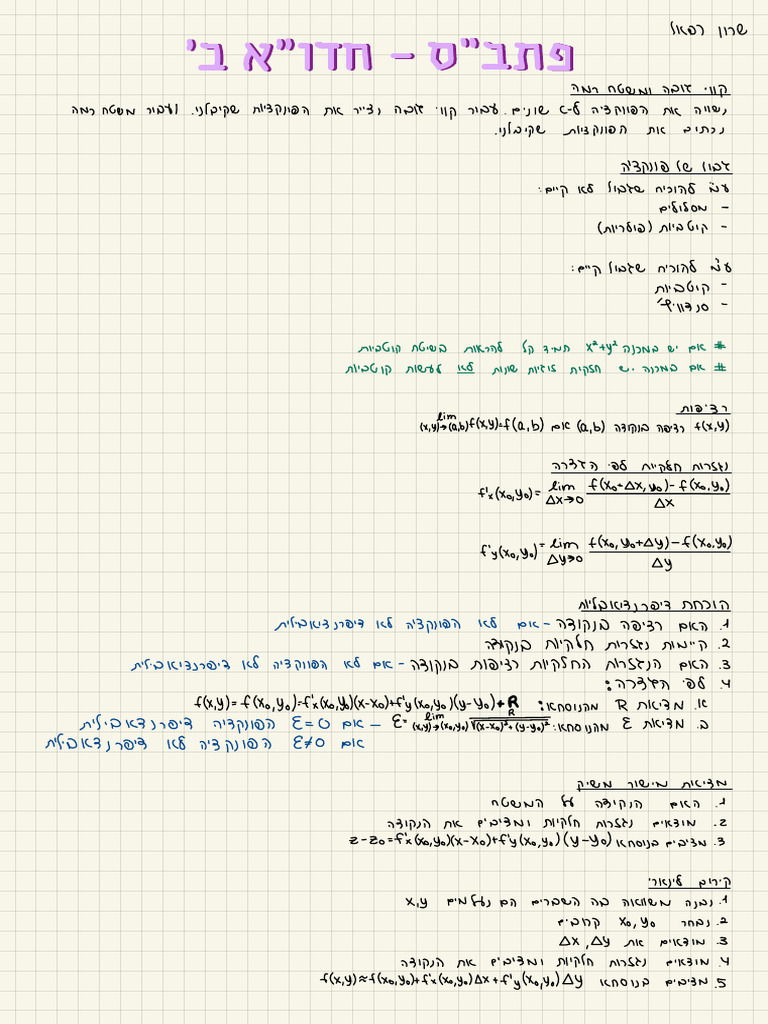 שרון רפאל
פתב"ס - חדו"א ב'
קווי גובה ומשטח רמה
נשווה את הפונקציה ל-c שונים. עבור קווי גובה נצייר את הפונקציות שקיבלנו. ועבור משטח רמה
נכתוב את הפונקציות שקיבלנו.
גבול של פונקציה
ע"מ להוכיח שגבול לא קיים:
- מסלולים
- קוטביות (פולריות)
ע"מ להוכיח שגבול קיים:
- קוטביות
- סנדוויץ'
# אם יש במכנה x²+y² תמיד קל להראות בשיטת קוטביות
# אם במכנה יש חזקות זוגיות שונות לא לעשות קוטביות
רציפות
f(x,y) רציפה בנקודה (a,b) אם lim (x,y)→(a,b) f(x,y)=f(a,b)
נגזרות חלקיות לפי הגדרה
f'x(x₀,y₀)= lim Δx→0 (f(x₀+Δx,y₀)-f(x₀,y₀))/Δx
f'y(x₀,y₀)= lim Δy→0 (f(x₀,y₀+Δy)-f(x₀,y₀))/Δy
הוכחת דיפרנציאבליות
1. האם רציפה בנקודה - אם לא הפונקציה לא דיפרנציאבילית
2. קיימות נגזרות חלקיות בנקודה
3. האם הנגזרות החלקיות רציפות בנקודה - אם לא הפונקציה לא דיפרנציאבילית
4. לפי הגדרה:
א. מציאת R מהנוסחא: f(x,y)=f(x₀,y₀)=f'x(x₀,y₀)(x-x₀)+f'y(x₀,y₀)(y-y₀)+R
ב. מציאת ε מהנוסחא: ε= lim (x,y)→(x₀,y₀) R/√((x-x₀)²+(y-y₀)²) - אם ε=0 הפונקציה דיפרנציאבילית
אם ε≠0 הפונקציה לא דיפרנציאבילית
מציאת מישור משיק
1. האם הנקודה על המשטח
2. מוצאים נגזרות חלקיות ומציבים את הנקודה
3. מציבים בנוסחא z-z₀=f'x(x₀,y₀)(x-x₀)+f'y(x₀,y₀)(y-y₀)
קירוב לינארי
1. נבנה משוואה בה השברים הם נעלמים x,y
2. נבחר x₀,y₀ קרובים
3. מוצאים את Δx,Δy
4. מוצאים נגזרות חלקיות ומציבים את הנקודה
5. מציבים בנוסחא f(x,y)≈f(x₀,y₀)+f'x(x₀,y₀)Δx+f'y(x₀,y₀)Δy